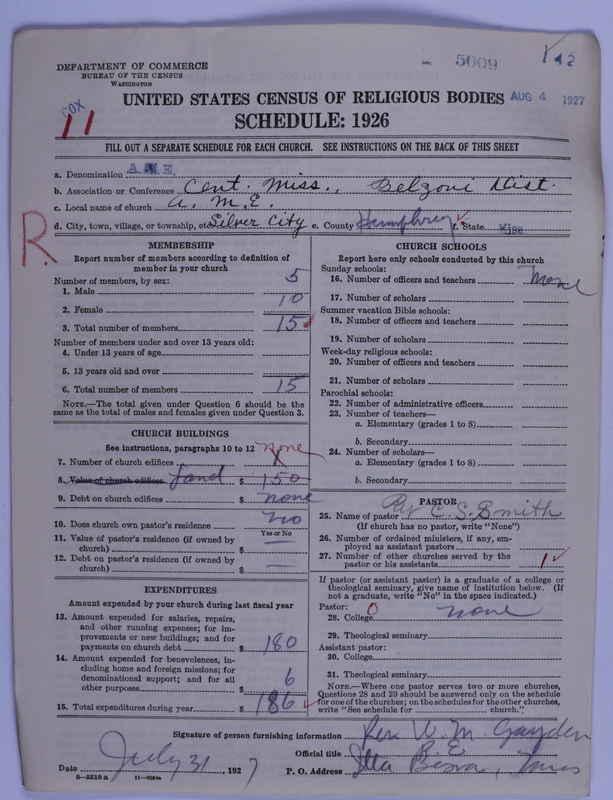 DEPARTMENT OF COMMERCE
BUREAU OF THE CENSUS
WASHINGTON
5009
UNITED STATES CENSUS OF RELIGIOUS BODIES
AUG 4 1927
SCHEDULE: 1926
COX
11
FILL OUT A SEPARATE SCHEDULE FOR EACH CHURCH. SEE INSTRUCTIONS ON THE BACK OF THIS SHEET
a. Denomination A.M.E.
b. Association or Conference Cent. Miss., Belzoni Dist.
c. Local name of church A. M. E.
d. City, town, village, or township, etc. Silver City e. County Humphrey f. State Miss
R.
MEMBERSHIP
Report number of members according to definition of member in your church
Number of members, by sex:
1. Male 5
2. Female 10
3. Total number of members 15
Number of members under and over 13 years old:
4. Under 13 years of age
5. 13 years old and over
6. Total number of members 15
NOTE.—The total given under Question 6 should be the same as the total of males and females given under Question 3.
CHURCH BUILDINGS
See instructions, paragraphs 10 to 12
none
7. Number of church edifices
8. Value of church edifices Land $ 150
9. Debt on church edifices $ none
10. Does church own pastor's residence no
Yes or No
11. Value of pastor's residence (if owned by church) $ —
12. Debt on pastor's residence (if owned by church) $ —
EXPENDITURES
Amount expended by your church during last fiscal year
13. Amount expended for salaries, repairs, and other running expenses; for improvements or new buildings; and for payments on church debt $ 180
14. Amount expended for benevolences, including home and foreign missions; for denominational support; and for all other purposes $ 6
15. Total expenditures during year $ 186
CHURCH SCHOOLS
Report here only schools conducted by this church
Sunday schools:
16. Number of officers and teachers None
17. Number of scholars
Summer vacation Bible schools:
18. Number of officers and teachers
19. Number of scholars
Week-day religious schools:
20. Number of officers and teachers
21. Number of scholars
Parochial schools:
22. Number of administrative officers
23. Number of teachers—
a. Elementary (grades 1 to 8)
b. Secondary
24. Number of scholars—
a. Elementary (grades 1 to 8)
b. Secondary
PASTOR
25. Name of pastor C. S. Smith
(If church has no pastor, write "None")
26. Number of ordained ministers, if any, employed as assistant pastors
27. Number of other churches served by the pastor or his assistants 1
If pastor (or assistant pastor) is a graduate of a college or theological seminary, give name of institution below. (If not a graduate, write "No" in the space indicated.)
Pastor: 0
28. College none
29. Theological seminary
Assistant pastor:
30. College
31. Theological seminary
NOTE.—Where one pastor serves two or more churches, Questions 28 and 29 should be answered only on the schedule for one of the churches; on the schedules for the other churches, write "See schedule for church."
Signature of person furnishing information Rev. W. M. Gayden
Official title P. E.
Date July 31, 1927 P. O. Address Itta Bena, Miss
8—5518 a